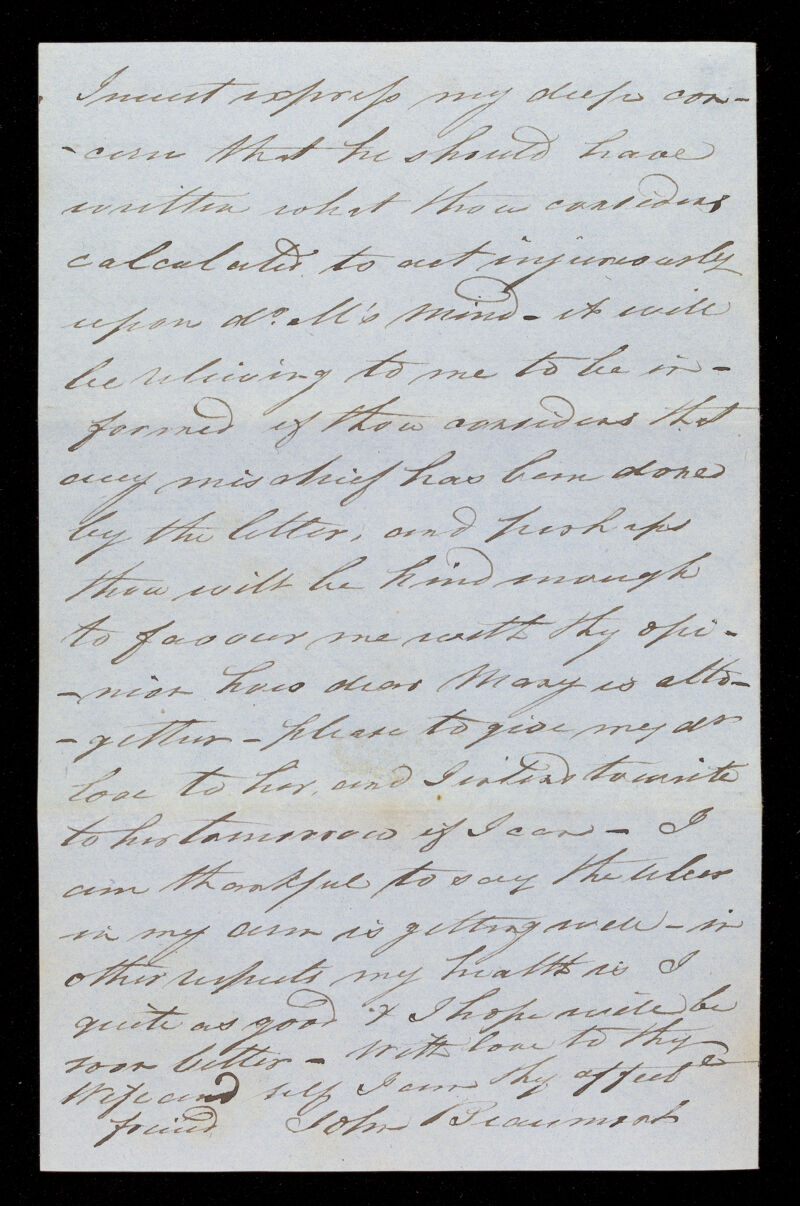 I must express my deep con-
-cern that he should have
written what thou considers
calculated to act injuriously
upon dr. M's mind - it will
be relieving to me to be in-
formed if thou considers that
any mischief has been done
by the letter, and perhaps
thou wilt be kind enough
to favour me with thy opi-
-nion how dear Mary is alto-
-gether - please to give my dr
love to her, and I intend to write
to her tomorrow if I can - I
am thankful to say the ulcer
in my arm is getting well - in
other respects my health is I
quite as good & I hope will be
soon better - With love to thy
Wife and self I am thy affecte
friend John Beaumont